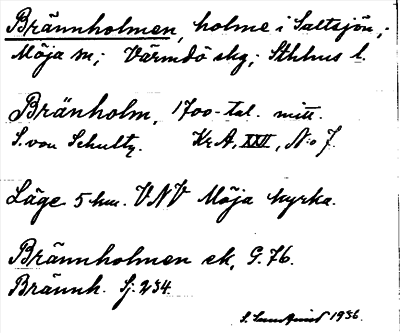 Brännholmen, holme i Saltsjön,;
Möja sn; Värmdö skg; Sthlms l.
Bränholm, 1700-tal. mitt.
S. von Schultz. Kr A, XXVI, No 7.
Läge 5 km. VNV Möja kyrka.
Brännholmen ek, G. 76.
Brännh. Sj. 234.
1936